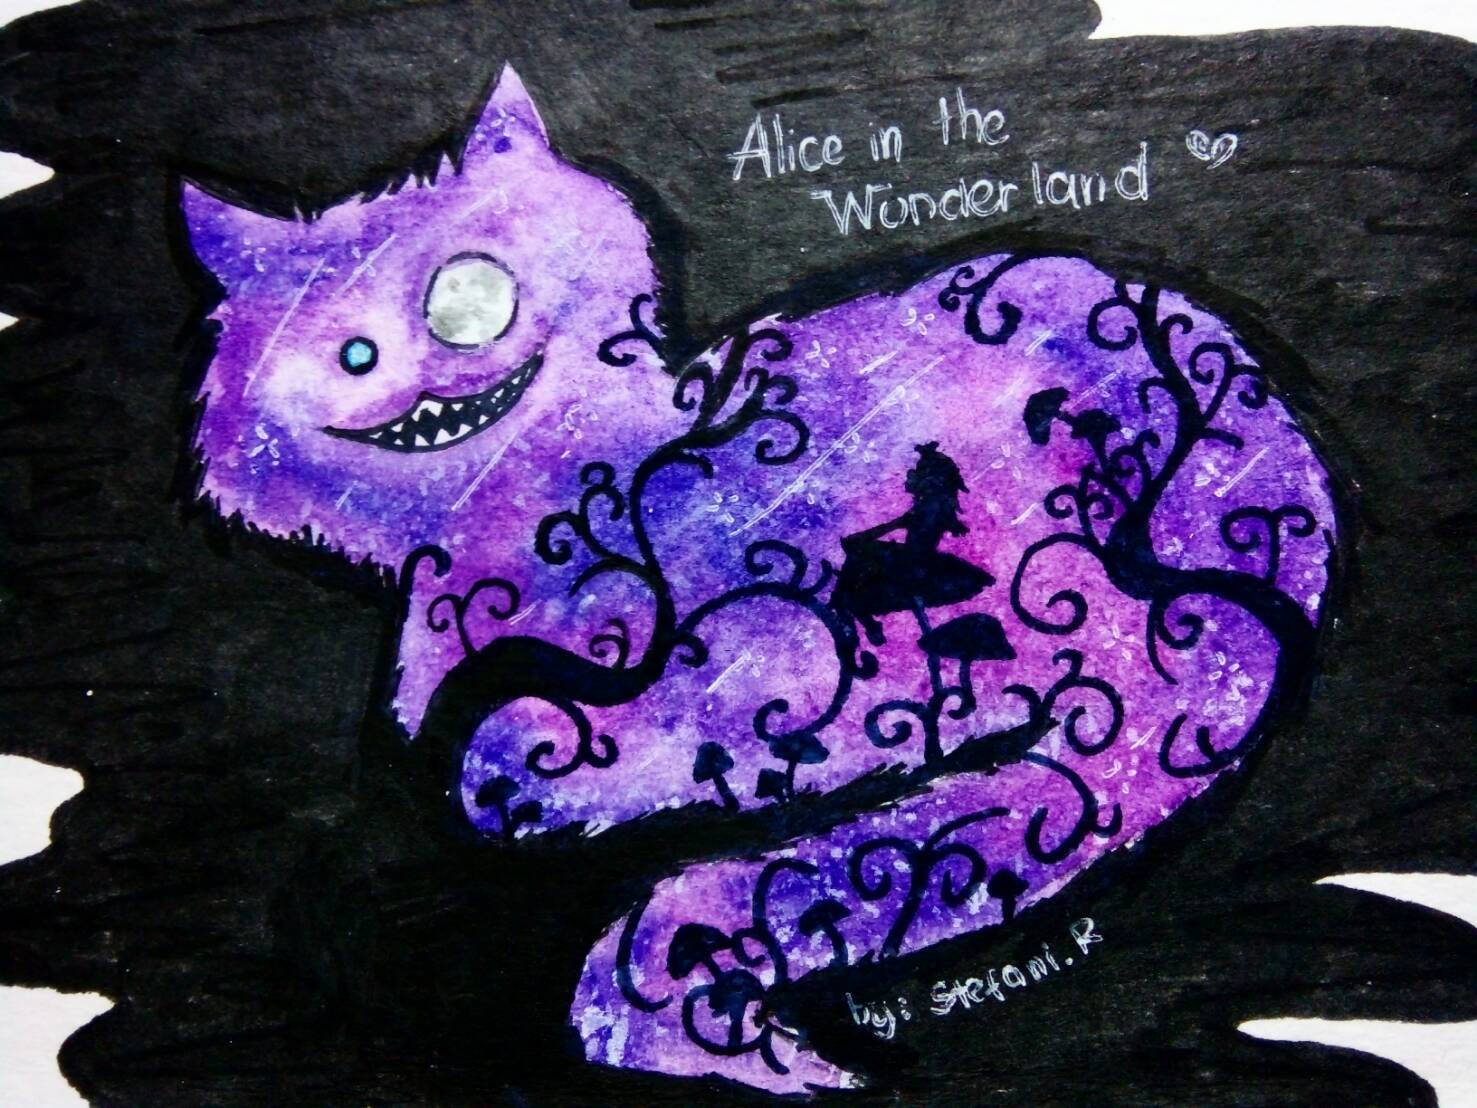 Alice in the
Wonderland
by: Stefani.R